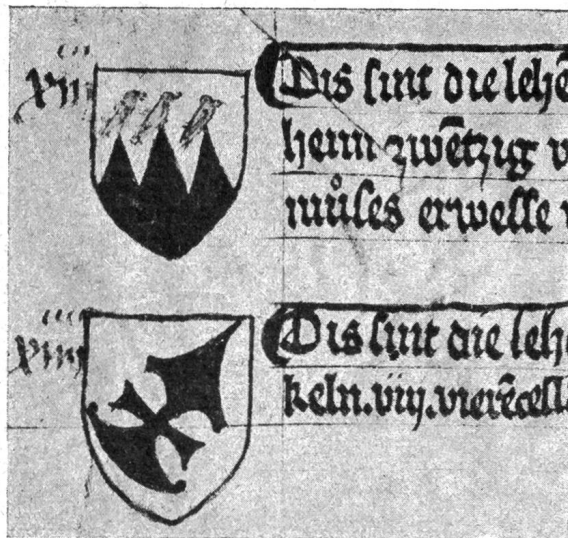 xiii
Dis sint die lehē
henn zwētzig v
můses erwelle
xiiii
Dis sint die lehe
keln. viij. vierēcell